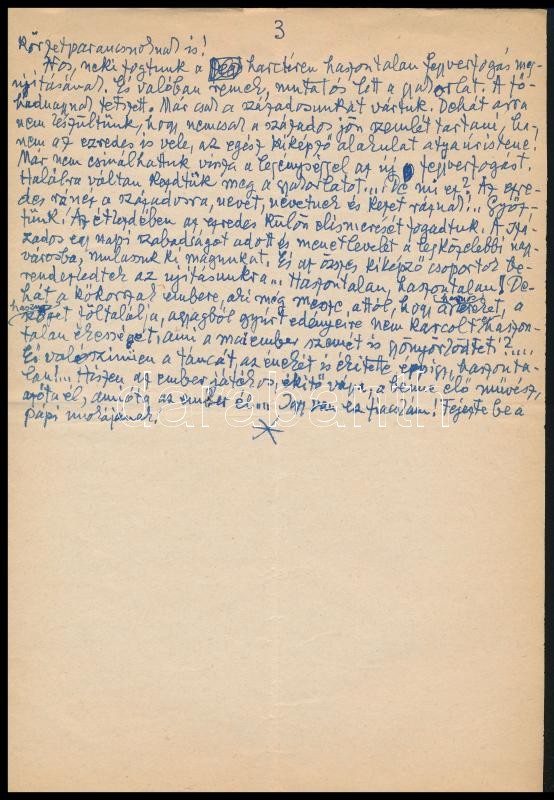 3
Körzetparancsnoknak is!
Hos, neki fogtunk a harctéren haszontalan fegyverfogás meg-
nyitásával. És valóban remek, mutatós lett a gyakorlat. A fő-
hadnagynak tetszett. Már csak a századosunkat vártuk. Dehát arra
nem készültünk, hogy nemcsak a százados jön szemlét tartani, ha-
nem az ezredes is vele, az egész kiképző alakulat atyaúristene.
Már nem csinálhattuk vissza a legénységgel az új fegyverfogást.
Halálra váltan kezdtük meg a gyakorlatot... De mi ez? Az ezre-
des ránéz a századosra, nevet, nevetnek és kezet ráznak... Győz-
tünk! Az étkezdében az ezredes külön elismerését fogadtuk. A szá-
zados egy napi szabadságot adott és menetlevelet a legközelebbi nagy-
városba, mulassuk ki magunkat. És az összes kiképző csoportok be-
rendezkedtek az újításunkra... Haszontalan, haszontalan! De-
hát a kőkorszak embere, aki még messze attól, hogy a kereket, a
hasznos
föltalálja, agyagból gyúrt edényeire nem karcolt haszon-
talan ékességet, ami a mai ember szemét is gyönyörködteti?....
És valószínűen a táncát, az énekét is éritette eppígy, haszonta-
lan!... Hiszen az ember játékos, ékítő vágya, a benne élő művész,
azóta él, amióta az ember él... Így van ez fiacskám! Fejezte be a
papi mókájának.
darabanth